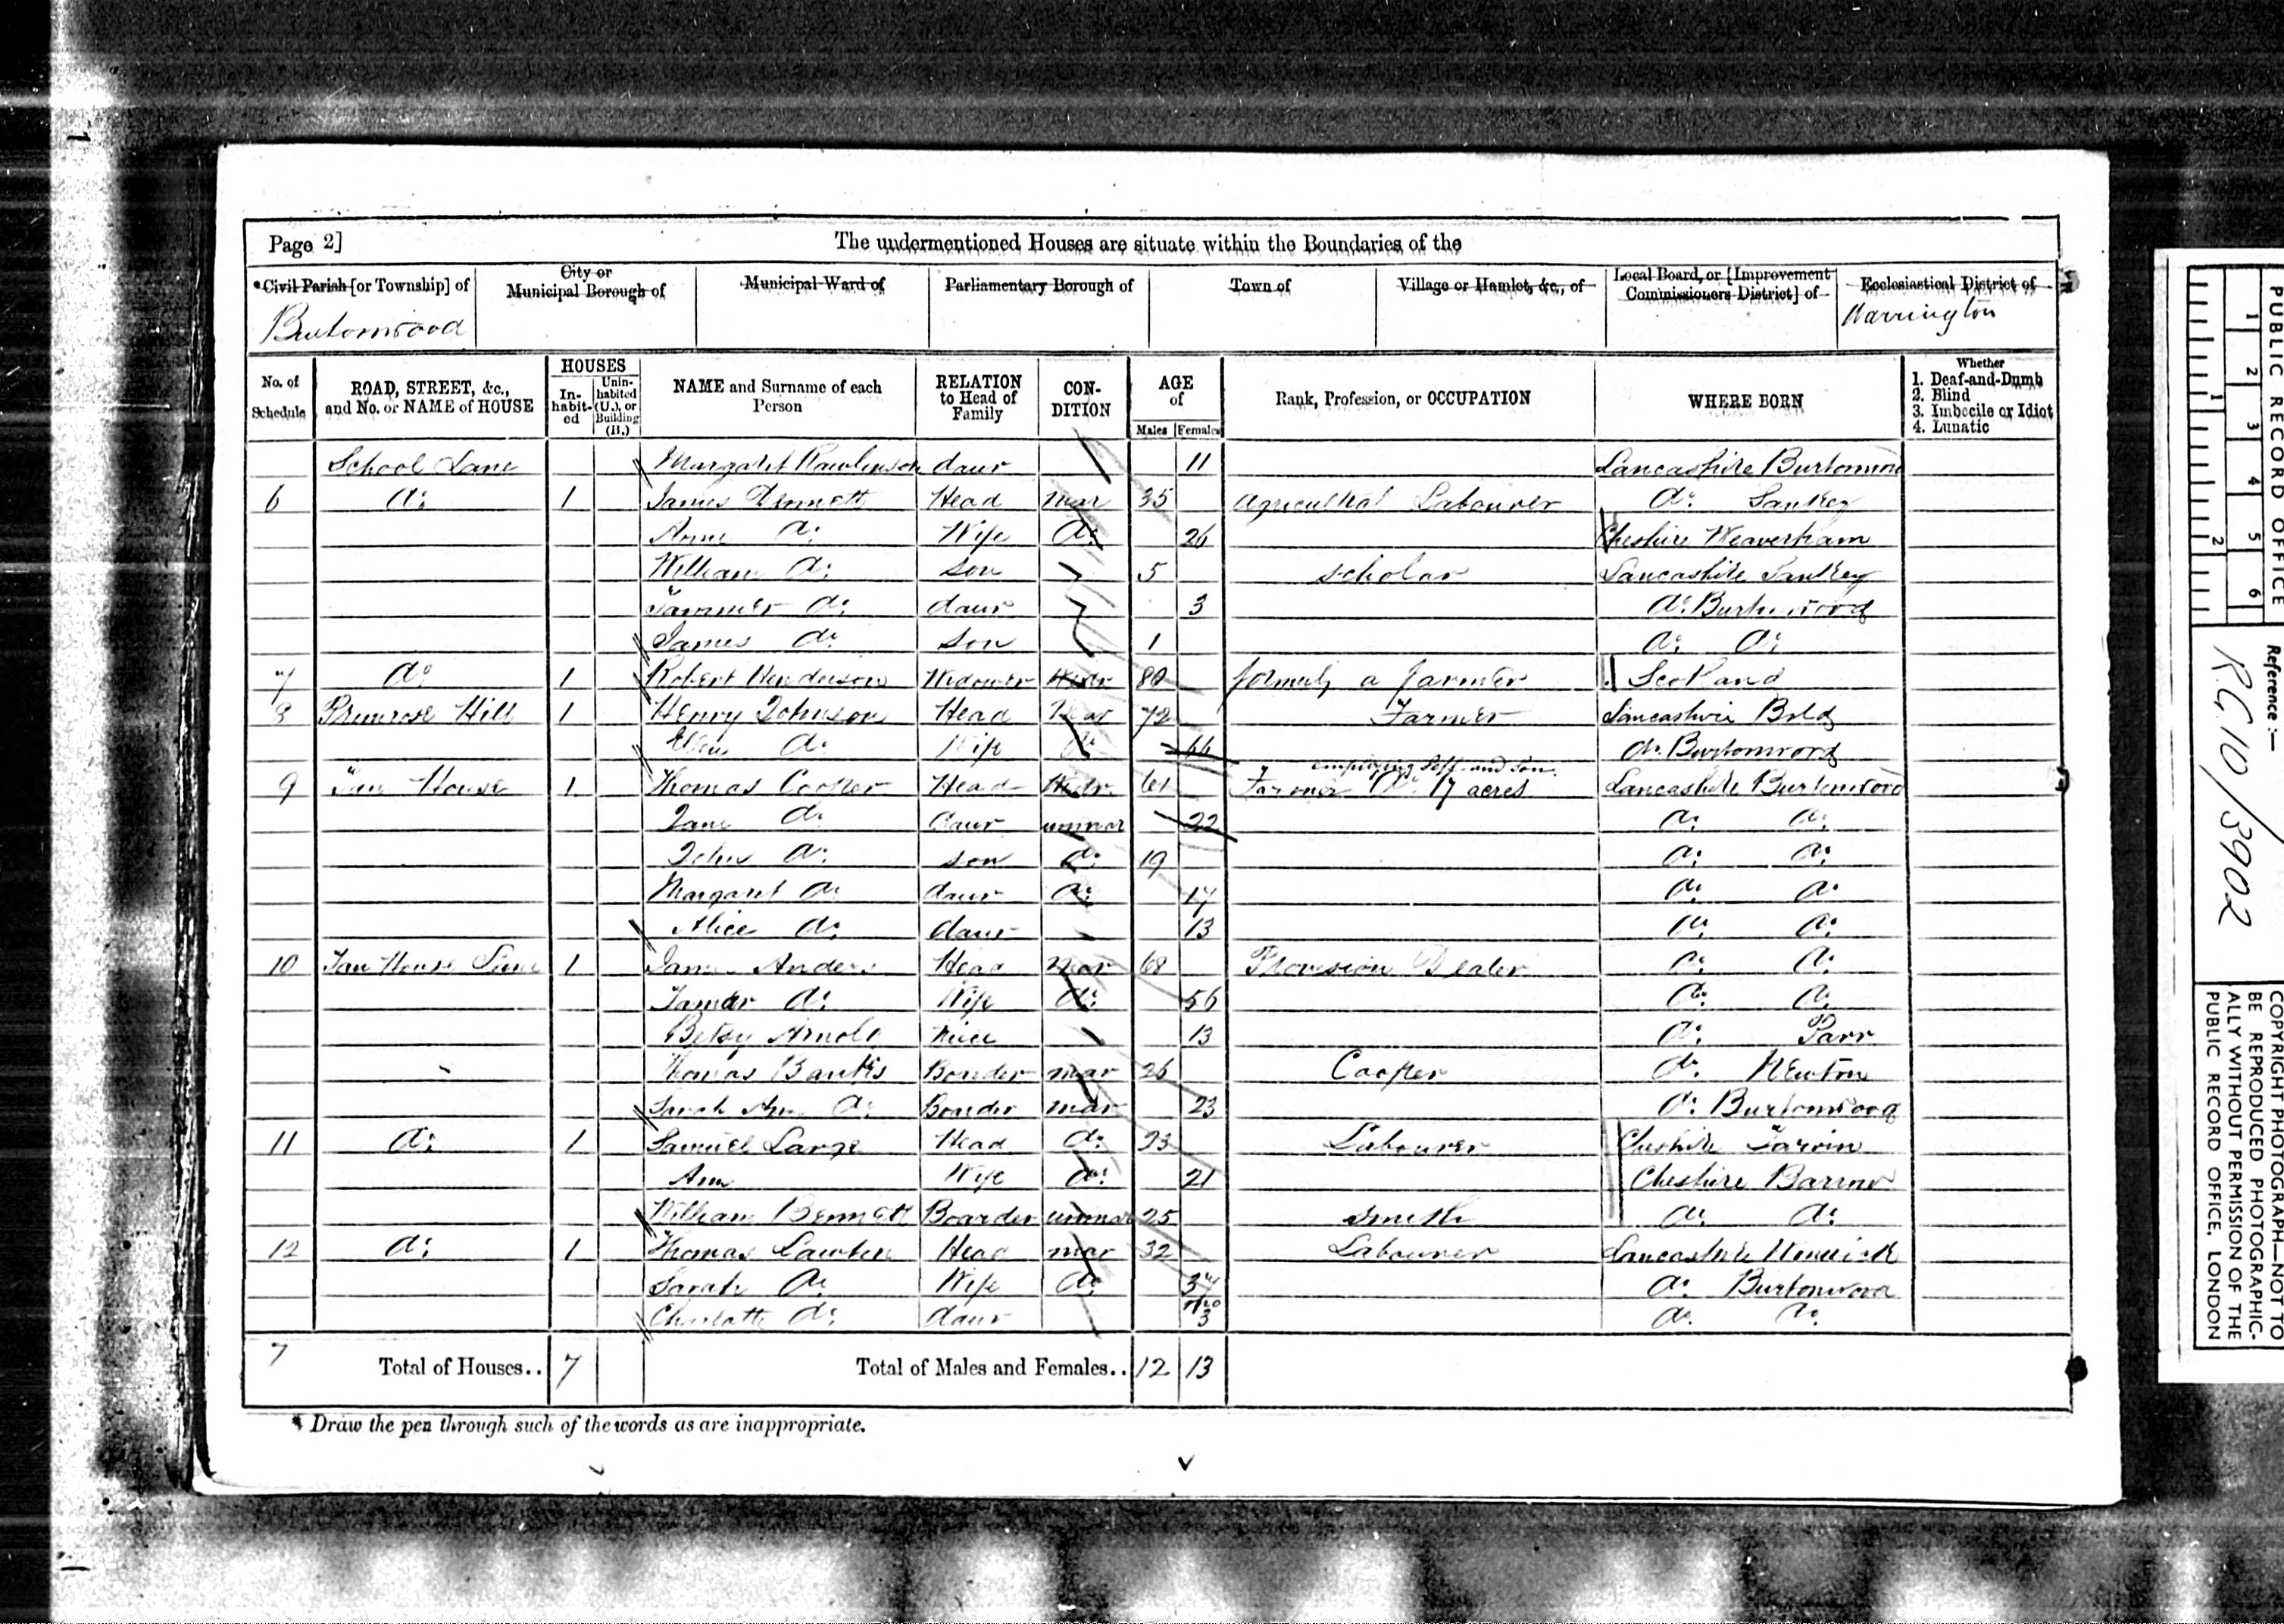 Page 2] The undermentioned Houses are situate within the Boundaries of the
Civil Parish [or Township] of City or Municipal Borough of Municipal Ward of Parliamentary Borough of Town of Village or Hamlet, &c., of Local Board, or [Improvement Commissioners District] of Ecclesiastical District of
Burtonwood Warrington
No. of Schedule ROAD, STREET, &c., and No. or NAME of HOUSE HOUSES Inhabited Uninhabited (U.), or Building (B.) NAME and Surname of each Person RELATION to Head of Family CONDITION AGE of Males Females Rank, Profession, or OCCUPATION WHERE BORN Whether 1. Deaf-and-Dumb 2. Blind 3. Imbecile or Idiot 4. Lunatic
School Lane Margaret Rawlinson daur 11 Lancashire Burtonwood
6 do 1 James Head mar 35 Agricultral Labourer do Sankey
Anne do Wife do 26 Cheshire Weaverham
William do son 5 scholar Lancashire Sankey
do daur 3 do Burtonwood
James do son 1 do do
7 do 1 Robert Henderson Widower Widr 80 formerly a farmer Scotland
8 Primrose Hill 1 Henry Johnson Head Mar 72 Farmer Lancashire Bold
Ellen do Wife do 66 do Burtonwood
9 House 1 Thomas Cooper Head Widr 61 Farmer 17 acres employing Self and Son Lancashire Burtonwood
Jane do daur unmar 22 do do
John do son do 19 do do
Margaret do daur do 17 do do
Alice do daur 13 do do
10 Tan House Lane 1 James Anders Head Mar 68 Provision Dealer do do
Tamar do Wife do 56 do do
Betsy Arnold Niece 13 do Parr
Thomas Banks Boarder mar 26 Cooper do Newton
Sarah Ann do Boarder mar 23 do Burtonwood
11 do 1 Samuel Large Head do 23 Labourer Cheshire Tarvin
Ann Wife do 21 Cheshire Barrow
William Bennett Boarder unmar 25 Smith do do
12 do 1 Thomas Head mar 32 Labourer Lancashire
Sarah do Wife do 37 do Burtonwood
Charlotte do daur mo 3 do do
7 Total of Houses.. 7 Total of Males and Females.. 12 13
* Draw the pen through such of the words as are inappropriate.
PUBLIC RECORD OFFICE
1 2 3 4 5 6
1 2
Reference :-
R.G. 10/3902
COPYRIGHT PHOTOGRAPH—NOT TO
BE REPRODUCED PHOTOGRAPHIC-
ALLY WITHOUT PERMISSION OF THE
PUBLIC RECORD OFFICE, LONDON